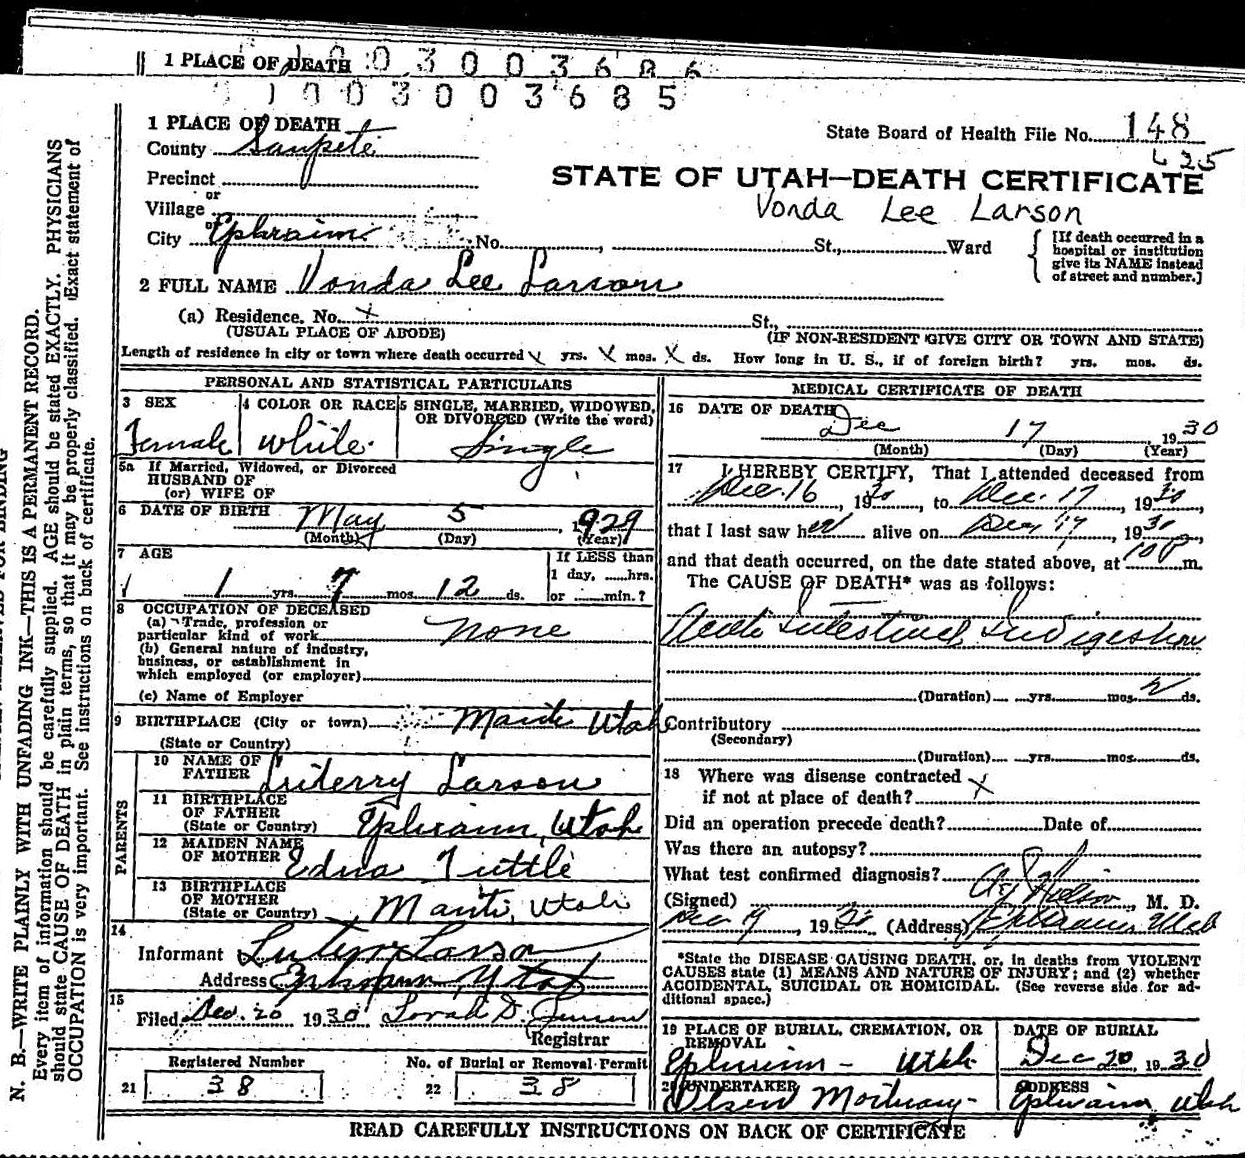 1 PLACE OF DEATH 1003003686
1003003685
1 PLACE OF DEATH
County Sanpete
State Board of Health File No. 148
625
Precinct
or
STATE OF UTAH—DEATH CERTIFICATE
Village
Vonda Lee Larson
or
City Ephraim No. , St., Ward
[If death occurred in a hospital or institution give its NAME instead of street and number.]
2 FULL NAME Vonda Lee Larson
(a) Residence. No. x St.,
(USUAL PLACE OF ABODE) (IF NON-RESIDENT GIVE CITY OR TOWN AND STATE)
Length of residence in city or town where death occurred x yrs. x mos. x ds. How long in U. S., if of foreign birth? yrs. mos. ds.
PERSONAL AND STATISTICAL PARTICULARS
3 SEX Female
4 COLOR OR RACE White
5 SINGLE, MARRIED, WIDOWED, OR DIVORCED (Write the word) Single
5a If Married, Widowed, or Divorced
HUSBAND OF
(or) WIFE OF
6 DATE OF BIRTH May 5, 1929
(Month) (Day) (Year)
7 AGE
1 yrs. 7 mos. 12 ds.
If LESS than
1 day, ......hrs.
or ......min.?
8 OCCUPATION OF DECEASED
(a) Trade, profession or
particular kind of work none
(b) General nature of industry,
business, or establishment in
which employed (or employer)
(c) Name of Employer
9 BIRTHPLACE (City or town) Manti Utah
(State or Country)
PARENTS
10 NAME OF FATHER Luterry Larson
11 BIRTHPLACE OF FATHER (State or Country) Ephraim, Utah
12 MAIDEN NAME OF MOTHER Edna Tuttle
13 BIRTHPLACE OF MOTHER (State or Country) Manti, Utah
14
Informant Luterry Larson
Address Ephraim, Utah
15
Filed Dec. 20 1930 Jensen
Registrar
Registered Number No. of Burial or Removal Permit
21 38 22 38
MEDICAL CERTIFICATE OF DEATH
16 DATE OF DEATH
Dec 17, 1930
(Month) (Day) (Year)
17 I HEREBY CERTIFY, That I attended deceased from
Dec. 16, 1930, to Dec. 17, 1930,
that I last saw her alive on Dec 17, 1930,
and that death occurred, on the date stated above, at 10 P m.
The CAUSE OF DEATH* was as follows:
Acute Intestinal Indigestion
(Duration) yrs. mos. 2 ds.
Contributory
(Secondary)
(Duration) yrs. mos. ds.
18 Where was disease contracted
if not at place of death? x
Did an operation precede death? Date of
Was there an autopsy?
What test confirmed diagnosis?
(Signed) , M. D.
Dec 19, 1930 (Address) Ephraim Utah
*State the DISEASE CAUSING DEATH, or, in deaths from VIOLENT
CAUSES state (1) MEANS AND NATURE OF INJURY; and (2) whether
ACCIDENTAL, SUICIDAL OR HOMICIDAL. (See reverse side for ad-
ditional space.)
19 PLACE OF BURIAL, CREMATION, OR REMOVAL
Ephraim - Utah
DATE OF BURIAL
Dec 20, 1930
20 UNDERTAKER
Olsen Mortuary-
ADDRESS
Ephraim, Utah
READ CAREFULLY INSTRUCTIONS ON BACK OF CERTIFICATE
N. B.—WRITE PLAINLY WITH UNFADING INK—THIS IS A PERMANENT RECORD.
Every item of information should be carefully supplied. AGE should be stated EXACTLY. PHYSICIANS
should state CAUSE OF DEATH in plain terms, so that it may be properly classified. Exact statement of
OCCUPATION is very important. See instructions on back of certificate.